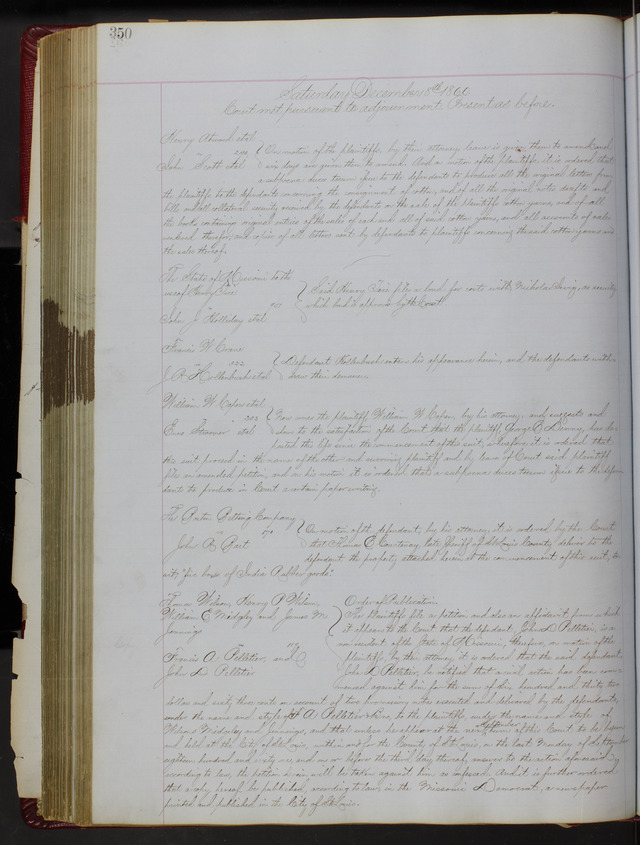 350
Saturday December 8th 1860
Court met pursuant to adjournment. Present as before.
Henry et al
vs
John Scott et al
On motion of the plaintiffs by their attorney leave is given them to amend and
six days are given them to amend. And on motion of the plaintiffs, it is ordered that
a subpoena duces tecum issue to the defendants to produce all the original letters from
the plaintiffs to the defendants concerning the consignment of cotton, and of all the original notes drafts and
bills and all collateral security received by the defendants on the sale of the plaintiffs cotton yarns, and of all
the books containing original entries of the sales of each and all of said cotton yarns, and all accounts of sales
rendered therefor, and copies of all letters sent by defendants to plaintiffs concerning the said cotton yarns and
the sales thereof.
The State of Missouri to the
use of Henry
vs
John J Holliday et al
Said Henry files a bond for costs with Nicholas as security
which bond is approved by the Court
Francis W Crane
J. P. Hollenbush et al
Defendant Hollenbush enters his appearance herein, and the defendants with
draw their demurrer.
William W et al
et al
Now comes the plaintiff William W by his attorney, and suggests and
shows to the satisfaction of the Court that the plaintiff, George has de-
parted this life since the commencement of this suit, therefore it is ordered that
the suit proceed in the name of the other and surviving plaintiff and by leave of Court said plaintiff
files an amended petition and on his motion it is ordered that a subpoena duces tecum issue to the defen
dants to produce in Court a certain paper writing.
The Belting Company
John B
On motion of the defendant, by his attorney, it is ordered by the Court
that Thomas late Sheriff of St Louis County, deliver to the
defendant the property attached herein at the commencement of this suit, to
wit; "five boxes of India Rubber goods"
Wilson, Henry P Wilson
William E Midgley and James M
Jennings
Francis A Pelletier and
John L Pelletier
Order of Publication.
The plaintiffs file a petition and also an affidavit from which
it appears to the Court that the defendant, John L Pelletier, is a
non resident of the State of Missouri, therefore, on motion of the
plaintiffs, by their attorney, it is ordered that the said defendant
John L Pelletier, be notified that a civil action has been com-
menced against him for the sum of six hundred and thirty two
dollars and sixty three cents on account of two promissory notes executed and delivered by the defendants,
under the name and style of F A Pelletier & Bro. to the plaintiffs under the name and style of
Wilsons Midgley and Jennings, and that unless he appear at the next term of this Court to be begun
and held at the City of St Louis, within and for the County of St Louis, on the last Monday of
eighteen hundred and sixty one and on or before the third day thereof, answer to the action aforesaid
according to law, the petition herein will be taken against him as confessed. And it is further ordered
that a copy hereof be published, according to law, in the Missouri Democrat, a newspaper
printed and published in the City of St Louis.